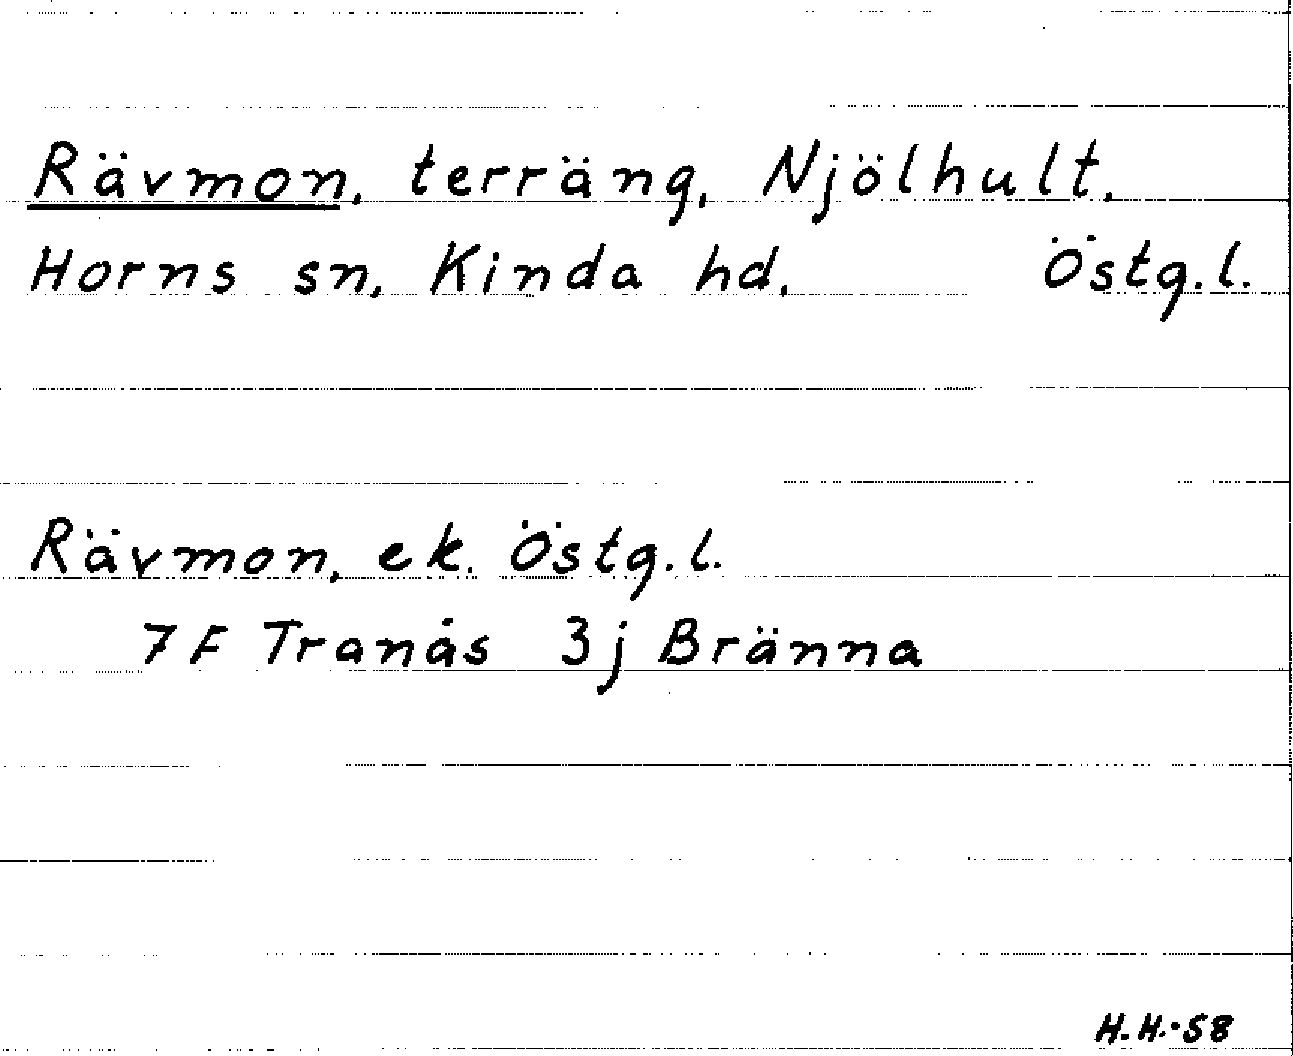 Rävmon, terräng, Njölhult,
Horns sn, Kinda hd, Östg.l.
Rävmon, ek. Östg.l.
7F Tranås 3j Bränna
H.H.-58